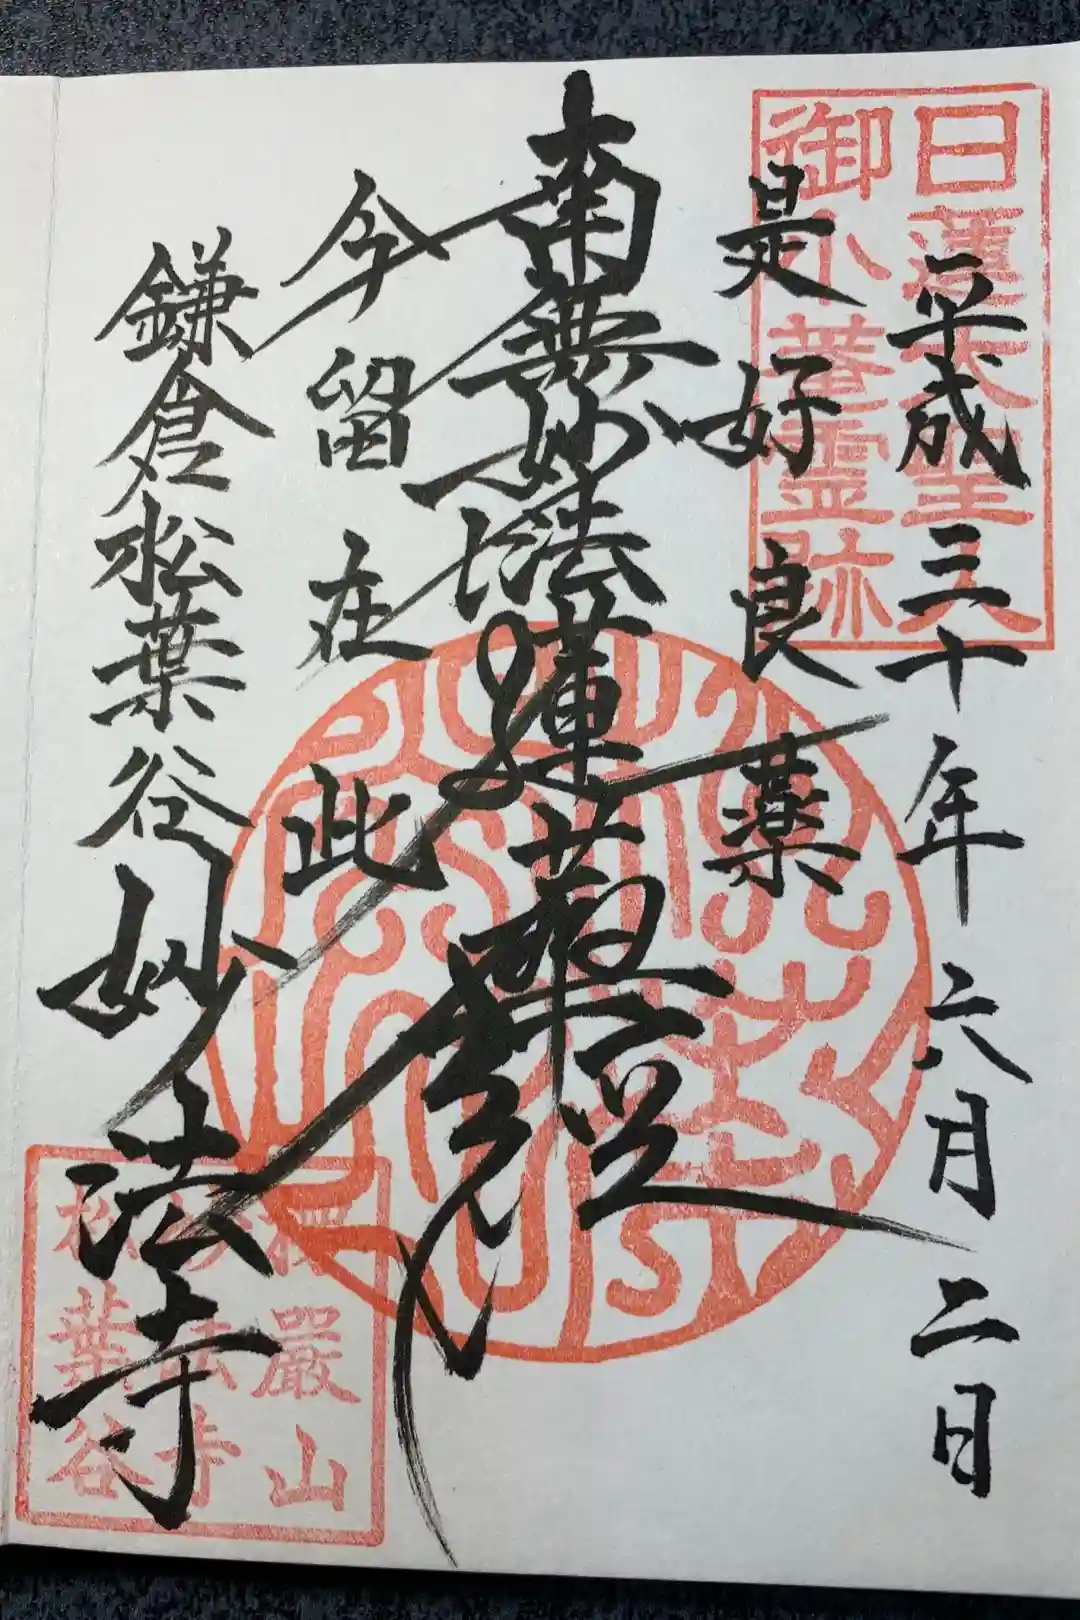 平成三十年六月二日
是好良薬
南無妙法蓮華経
今留在此
鎌倉松葉谷妙法寺
日蓮大聖人
御小菴霊跡
楞嚴山
妙法寺
松葉谷